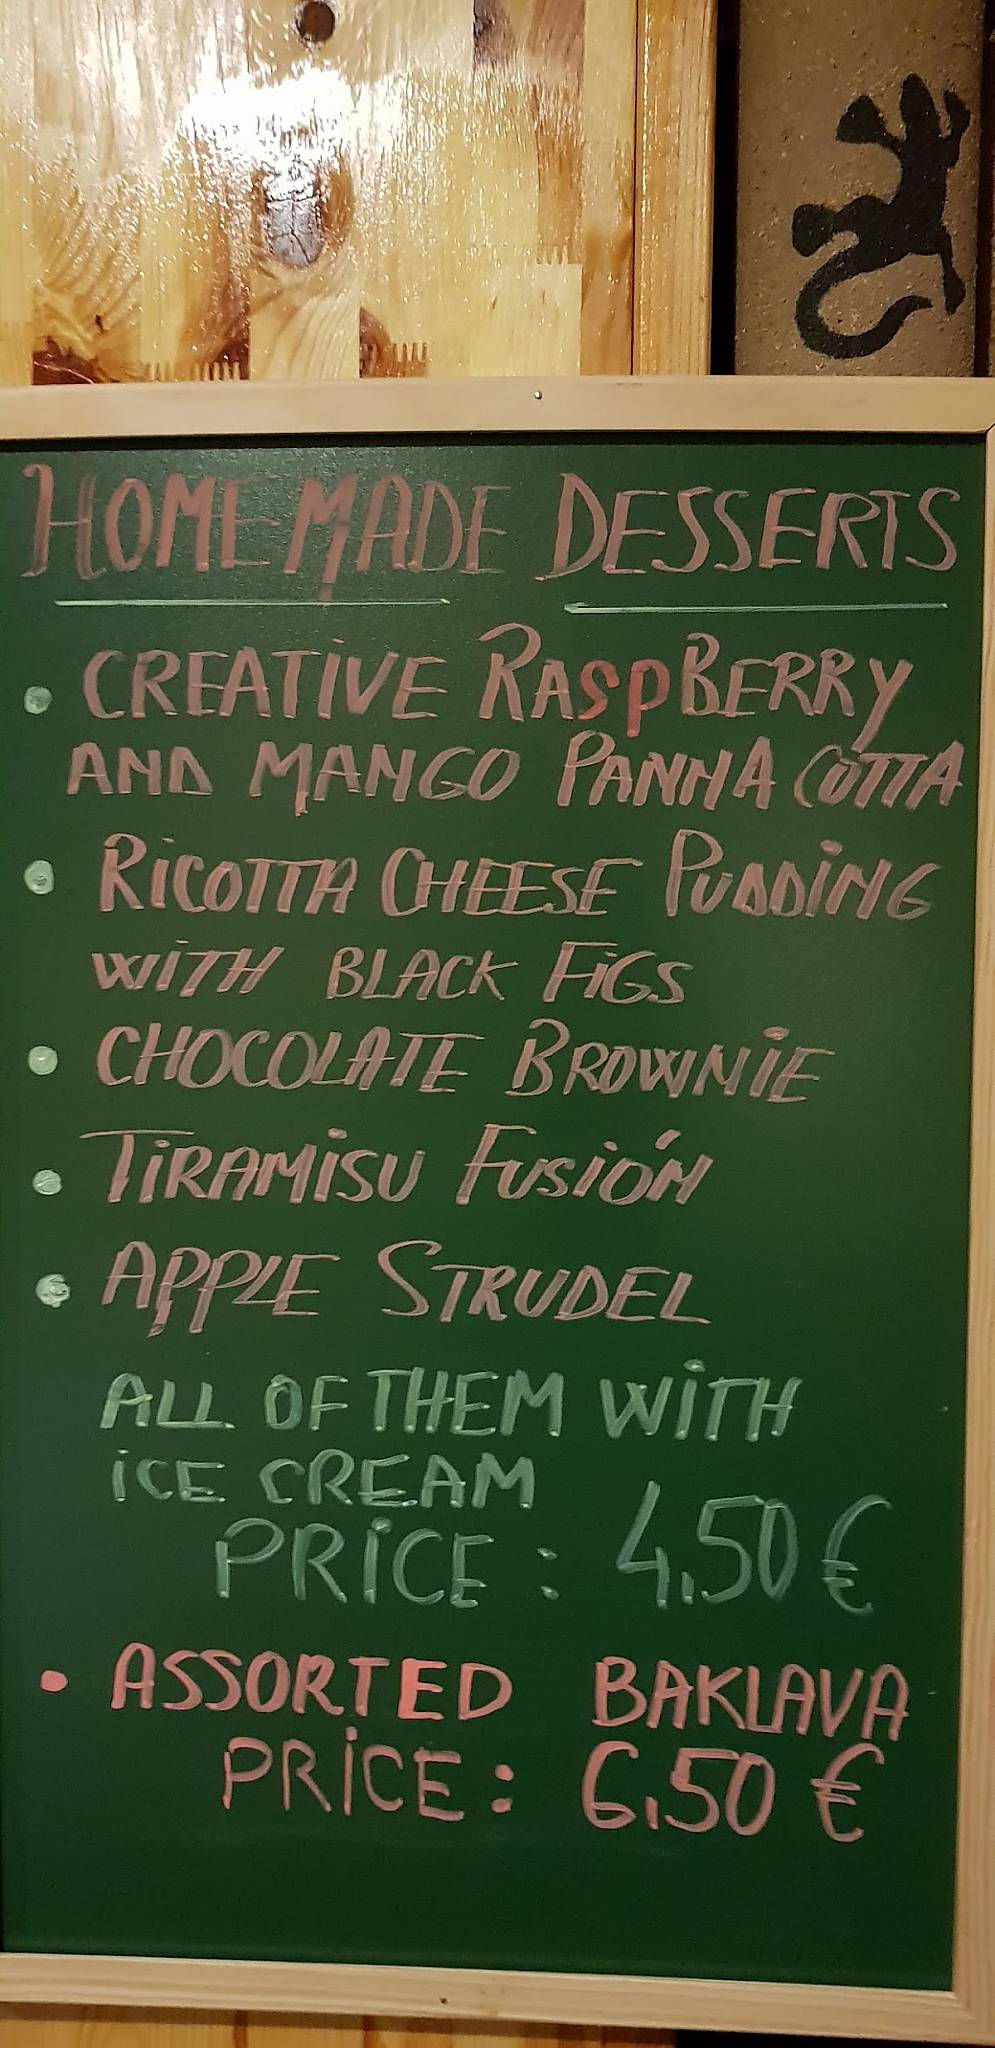 HOMEMADE DESSERTS
• CREATIVE RASPBERRY
AND MANGO PANNA COTTA
• RICOTTA CHEESE PUDDING
WITH BLACK FIGS
• CHOCOLATE BROWNIE
• TIRAMISU FUSIÓN
• APPLE STRUDEL
ALL OF THEM WITH
ICE CREAM
PRICE: 4,50 €
• ASSORTED BAKLAVA
PRICE: 6,50 €